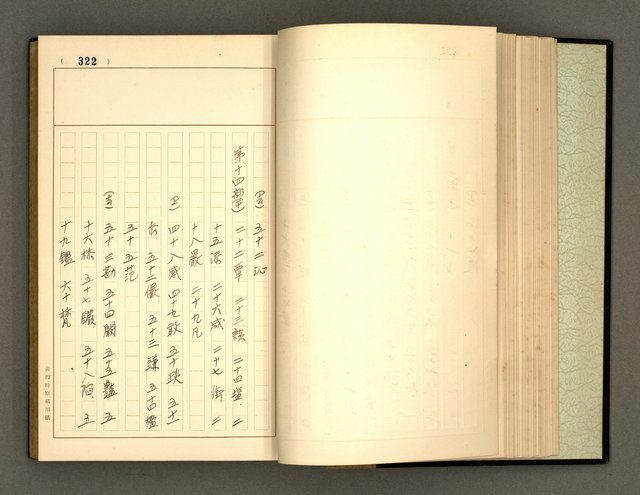 ( 322 )
(去) 五十二沁
第十四部(平) 二十二覃 二十三談 二十四塩 二
十五添 二十六咸 二十七銜 二
十八嚴 二十九凡
(上) 四十八感 四十九敢 五十琰 五十一
忝 五十二儼 五十三豏 五十四檻
五十五范
(去) 五十三勘 五十四闞 五十五豔 五
十六㮇 五十七驗 五十八陷 五
十九鑑 六十梵
黃得時原稿用紙